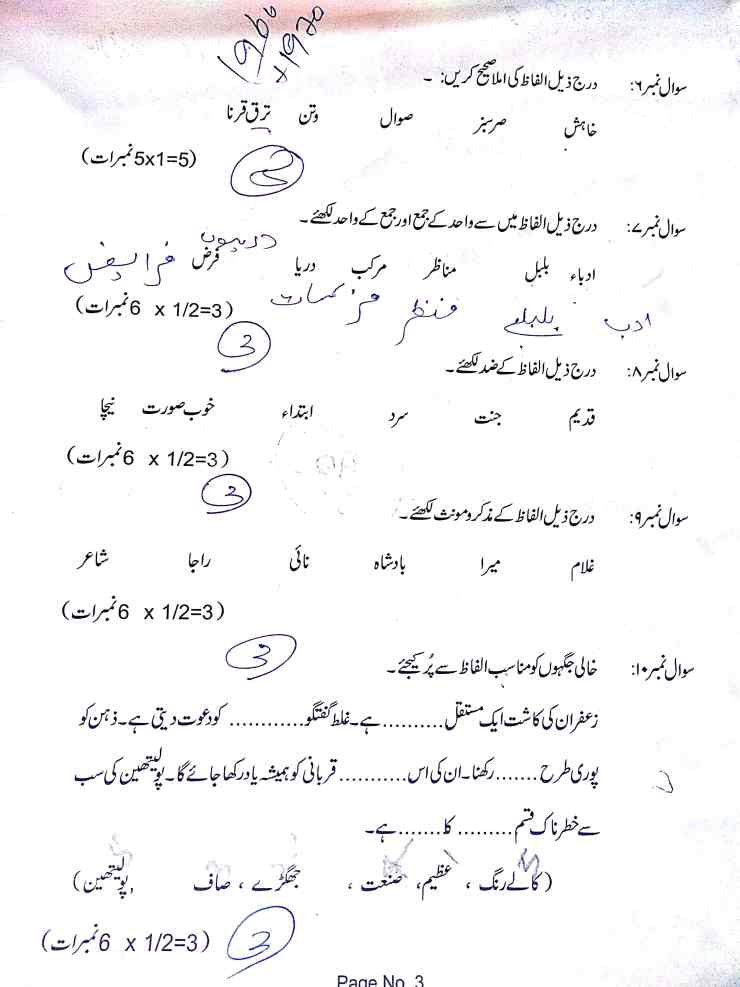 1960
x 1970
سوال نمبر۶: درج ذیل الفاظ کی املا صحیح کریں: ۔
خاہش صرسبز صوال وتن ترق قرنا
(5x1=5 نمبرات)
2
سوال نمبر۷: درج ذیل الفاظ میں سے واحد کے جمع اور جمع کے واحد لکھئے۔
دریوں
ادباء بلبل مناظر مرکب دریا فرض فرایض
ادب بلبلے منظر مرکبات
(6 x 1/2=3 نمبرات)
3
سوال نمبر۸: درج ذیل الفاظ کے ضد لکھئے۔
قدیم جنت سرد ابتداء خوب صورت نیچا
(6 x 1/2=3 نمبرات)
3
سوال نمبر۹: درج ذیل الفاظ کے مذکر و مونث لکھئے۔
غلام میرا بادشاہ نائی راجا شاعر
(6 x 1/2=3 نمبرات)
3
سوال نمبر۱۰: خالی جگہوں کو مناسب الفاظ سے پُر کیجئے۔
زعفران کی کاشت ایک مستقل..........ہے۔غلط گفتگو............ کو دعوت دیتی ہے۔ذہن کو
پوری طرح.......رکھنا۔ان کی اس...........قربانی کو ہمیشہ یاد رکھا جائے گا۔پولیتھین کی سب
سے خطرناک قسم......... کا.......ہے۔
(کالے رنگ ، عظیم، صنعت ، جھگڑے ، صاف ,پولیتھین)
(6 x 1/2=3 نمبرات)
3
Page No. 3